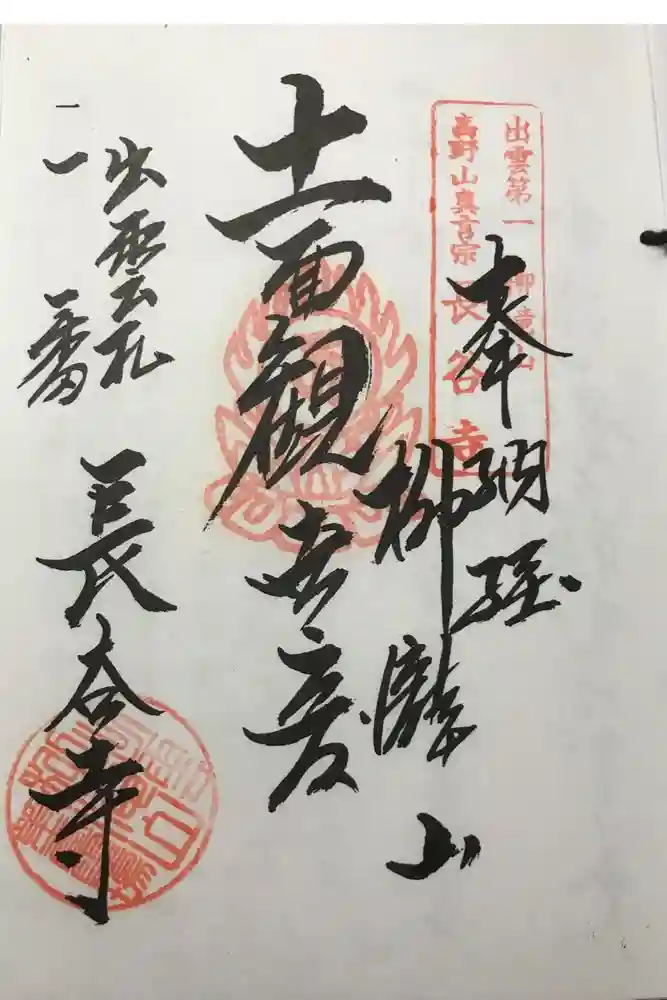 出雲第一
高野山真言宗 長谷寺
奉納経
柳瀧山
十一面観世音
出雲札
一番
長谷寺